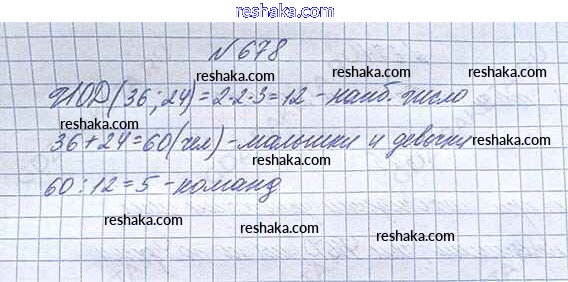 reshaka.com
№ 678
reshaka.com reshaka.com
НОД(36; 24) = 2·2·3 = 12 - наиб. число
reshaka.com reshaka.com
36+24=60(чел) - мальчики и девочки
reshaka.com reshaka.com reshaka.com
60 : 12 = 5 - команд
reshaka.com reshaka.com
reshaka.com